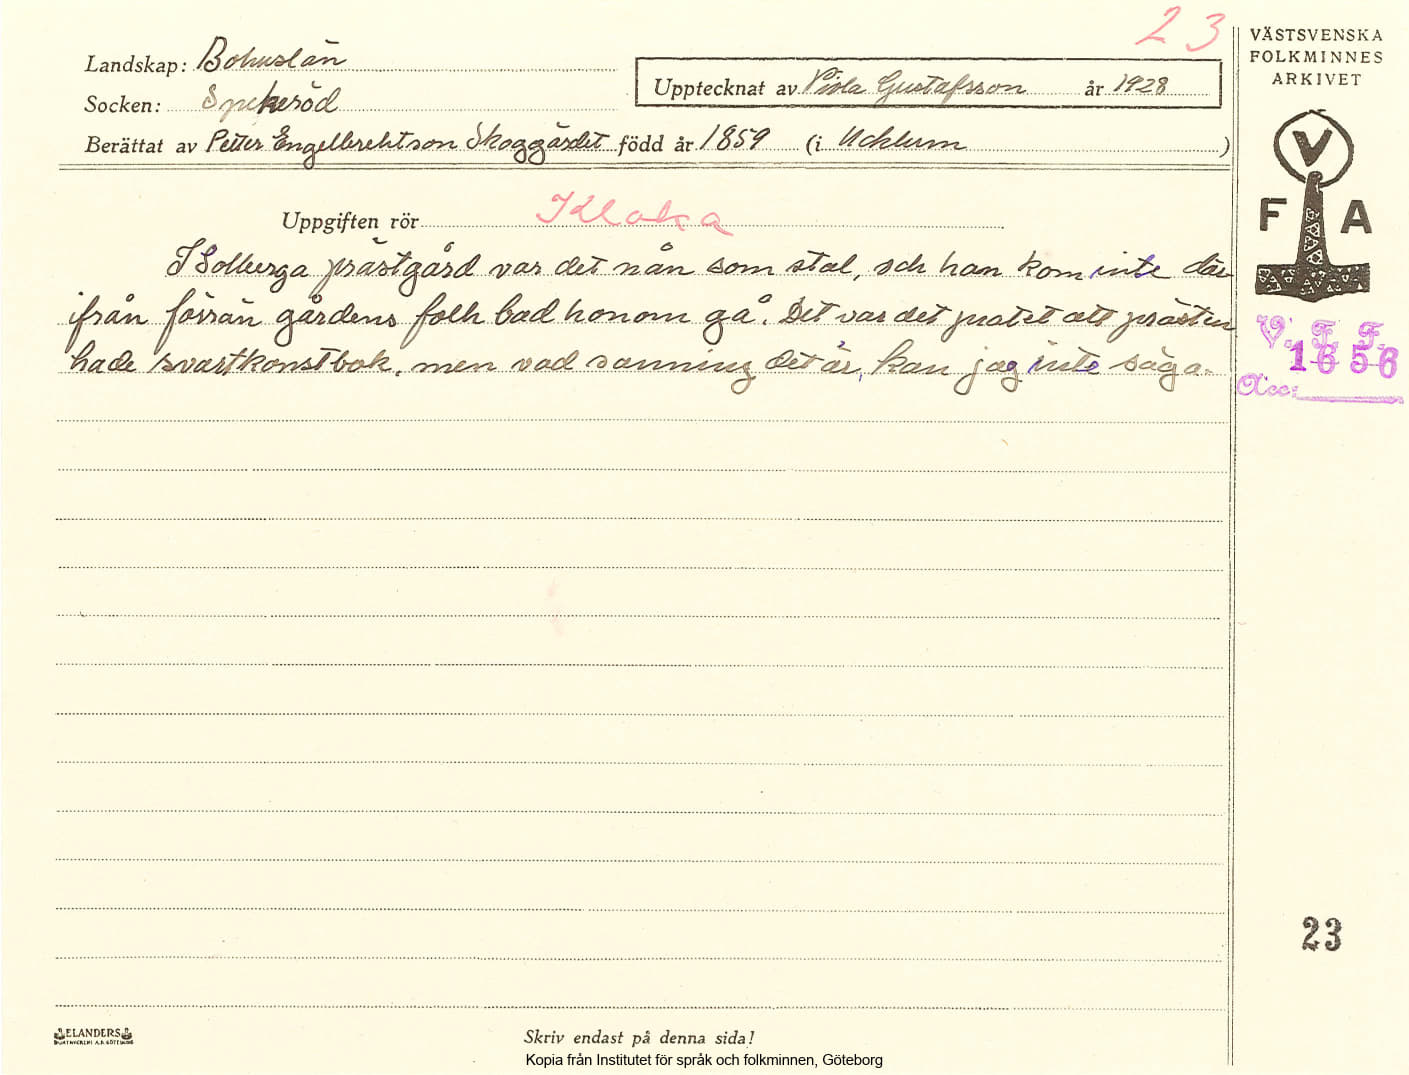 23
Landskap: Bohuslän
Socken: Spekeröd
Upptecknat av Viola Gustafsson år 1928
Berättat av Petter Engelbrektson Skoggärdet född år 1859 (i Ucklum)
Uppgiften rör Kloka
I Solberga prästgård var det nån som stal, och han kom inte där
ifrån förrän gårdens folk bad honom gå. Det var det pratet att prästen
hade svartkonstbok, men vad sanning det är, kan jag inte säga.
VÄSTSVENSKA
FOLKMINNES
ARKIVET
V
F A
V. F. F.
1656
Acc:
23
ELANDERS
BOKTRYCKERI A.B. GÖTEBORG
Skriv endast på denna sida!
Kopia från Institutet för språk och folkminnen, Göteborg